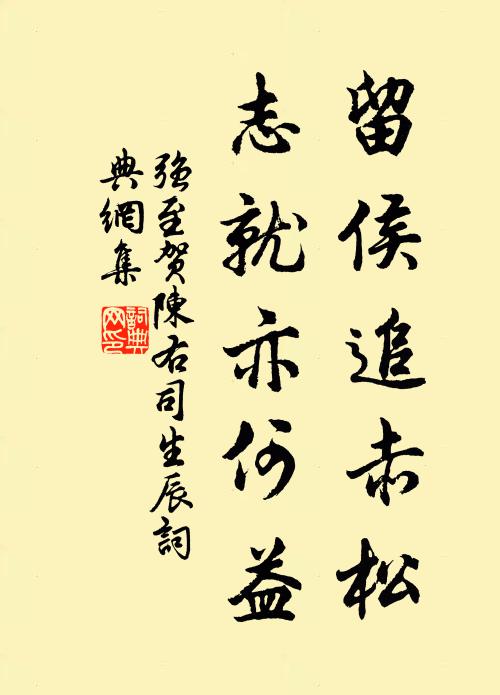 留侯追赤松
志就亦何益
強至賀陳右司生辰詞
典網集
詞典网印